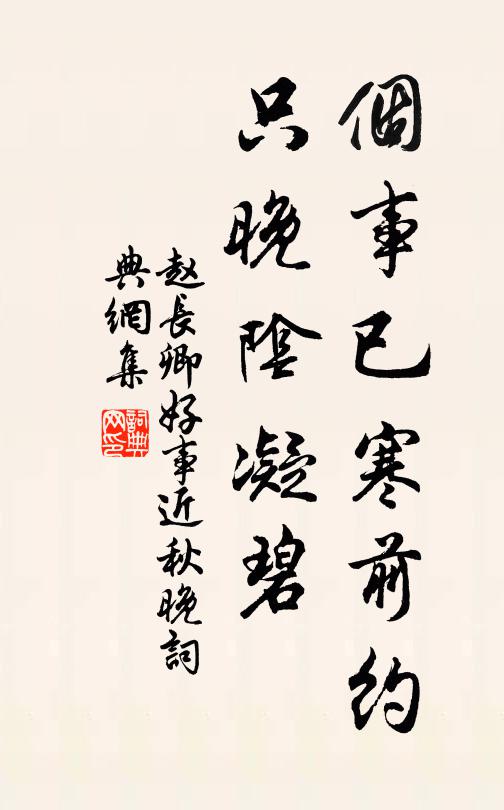 個事已寒前約
只晚陰凝碧
赵長卿好事近秋晚詞
典網集
詞典网印